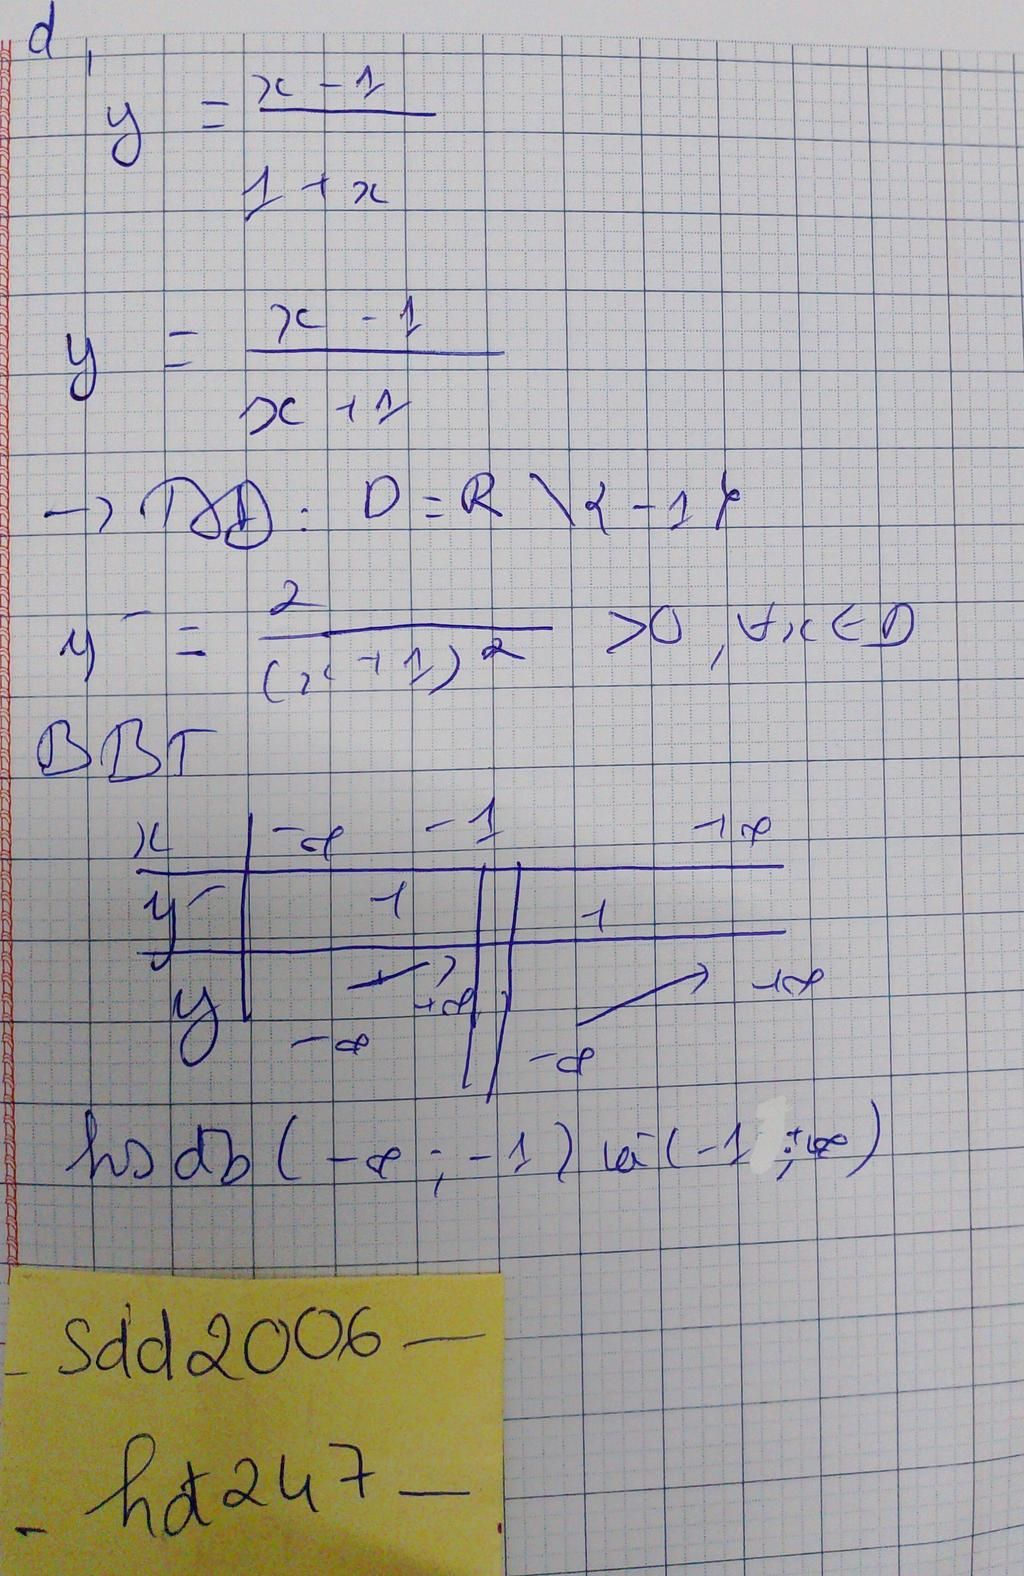 d,
y = x - 1 / 1 + x
y = x - 1 / x + 1
→ TXĐ : D = R \ { -1 }
y' = 2 / (x + 1)² > 0, ∀x ∈ D
BBT
x -∞ -1 +∞
y' + +
y -∞ +∞ -∞ +∞
hs đb ( -∞ ; -1 ) và ( -1 ; +∞ )
- sdd2006 -
- hdt247 -